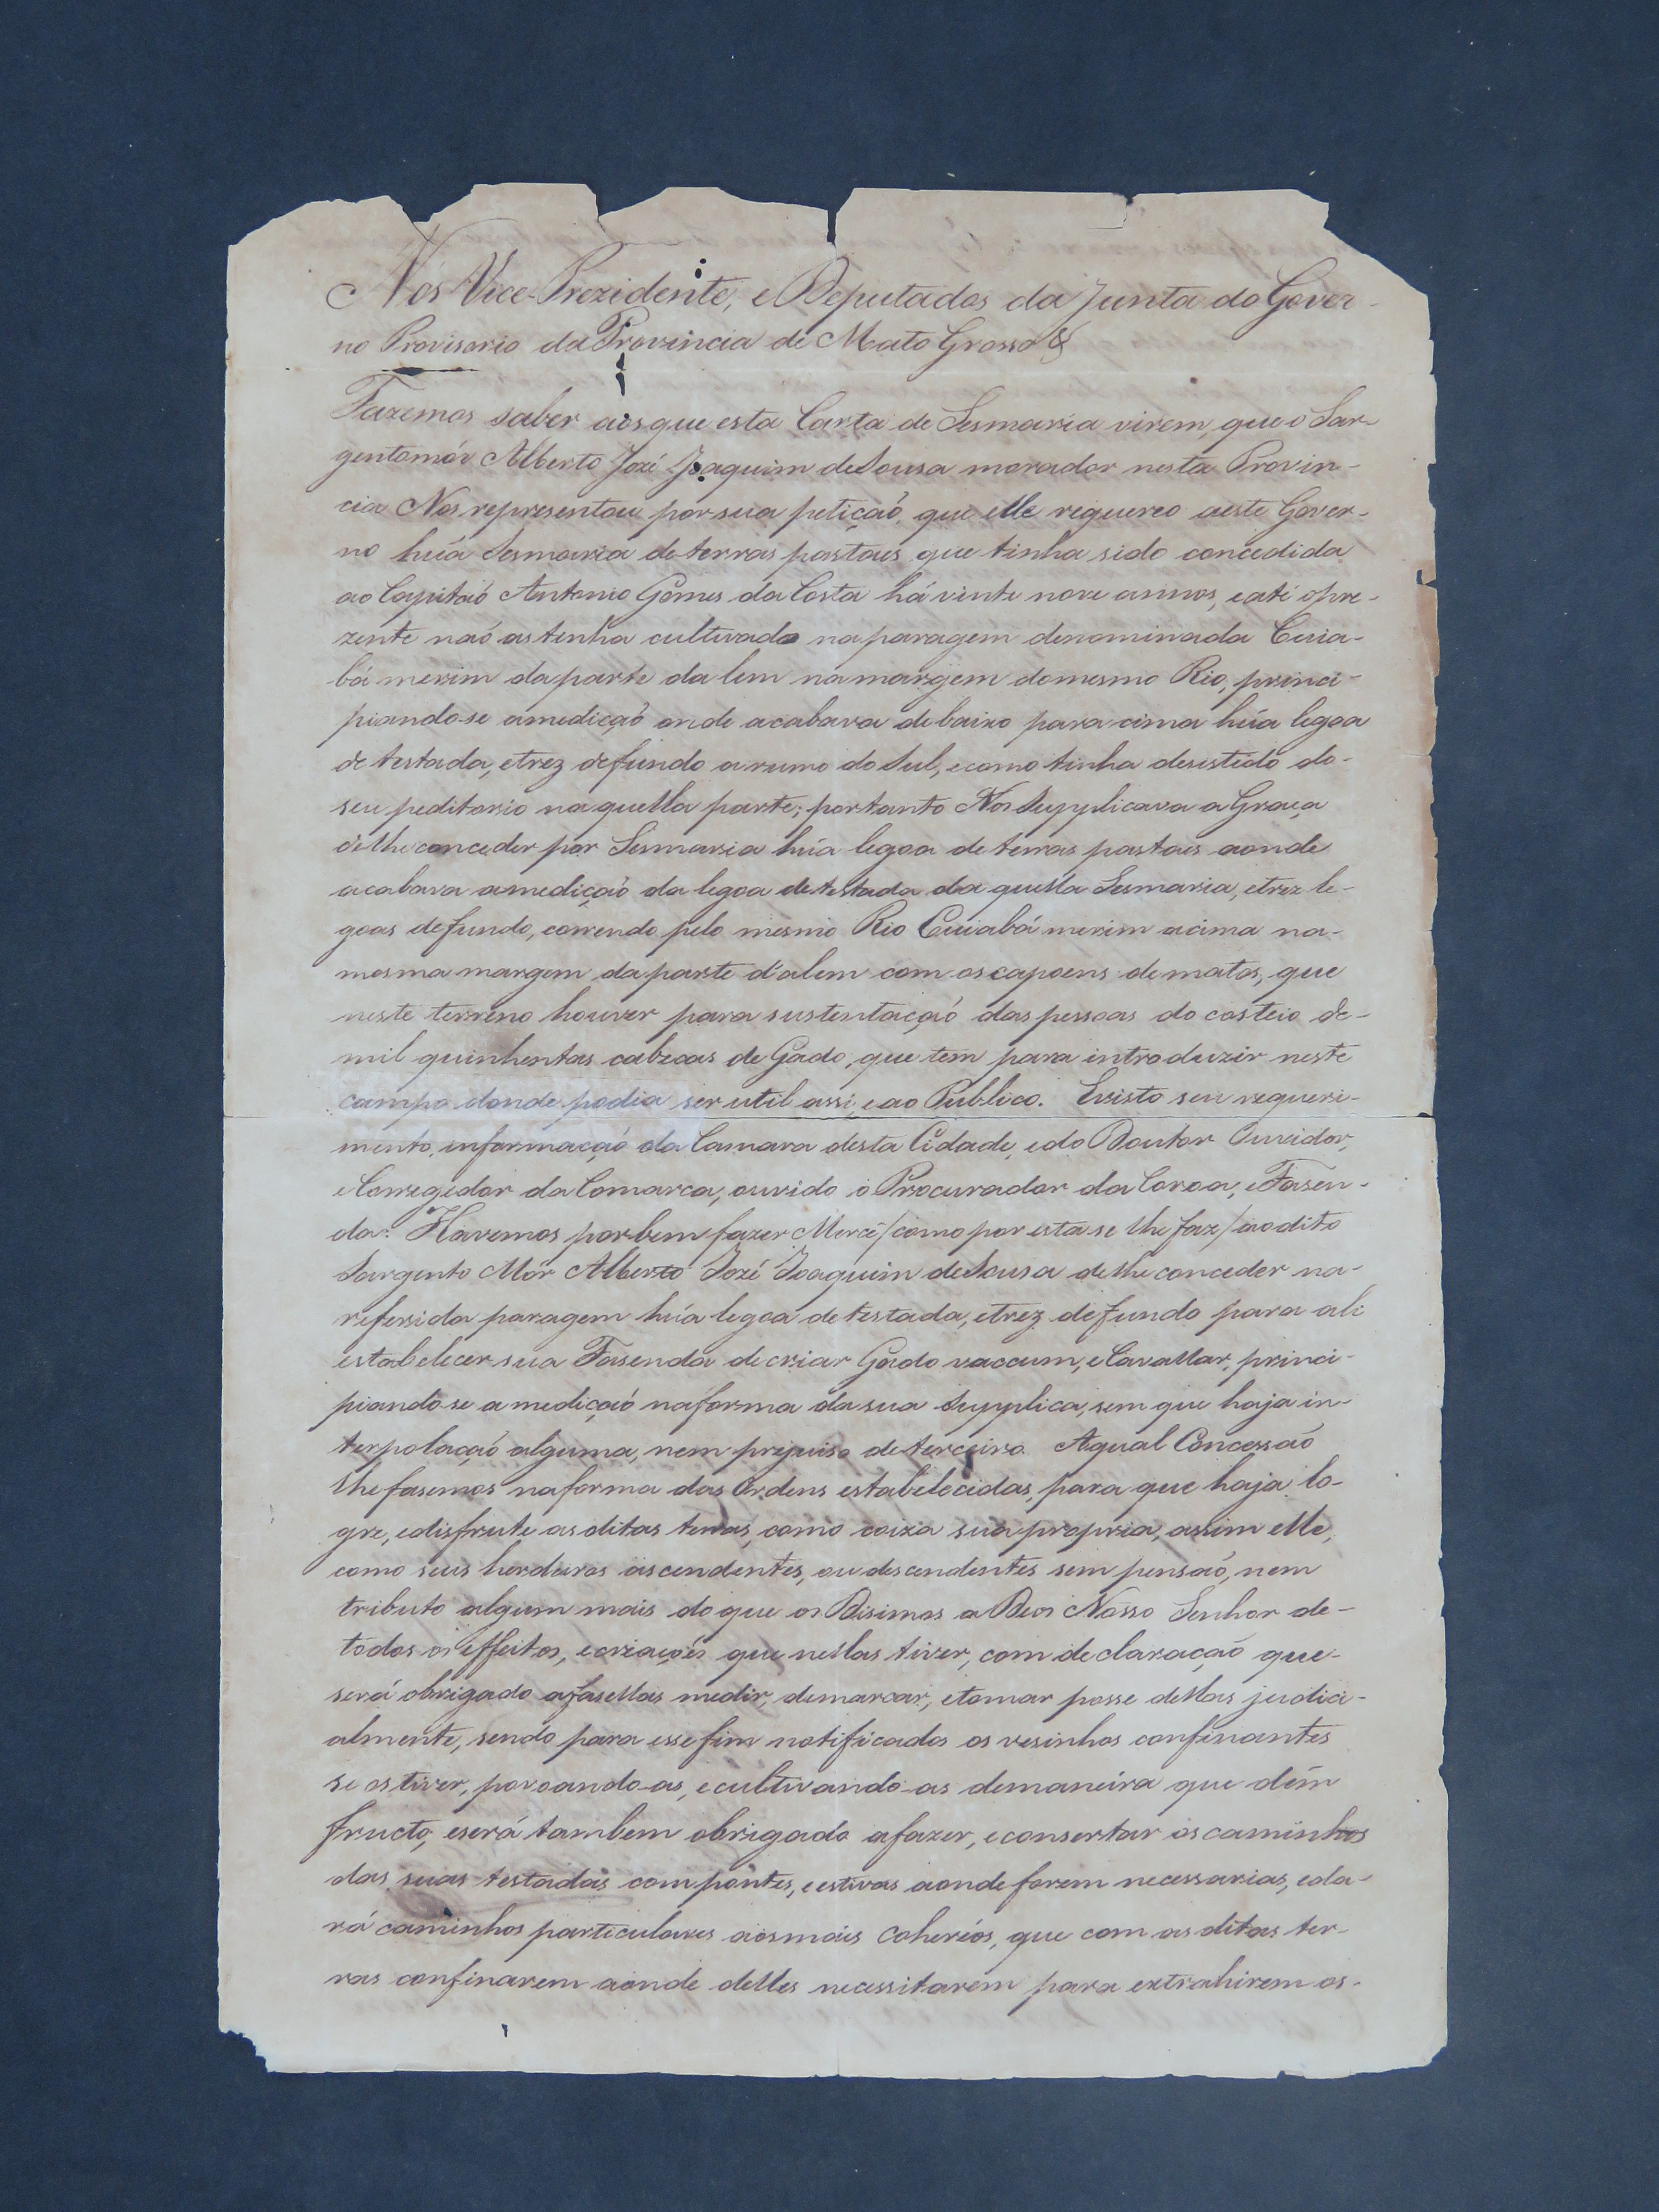 Nós Vice-Prezidente, e Deputados da Junta do Gover-
no Provisorio da Provincia de Mato Grosso &
Fazemos saber aos que esta Carta de Sesmaria virem, que o Sar-
gentomór Alberto Jozé Joaquim de Sousa morador nesta Provin-
cia Nos representou por sua petiçaõ, que elle requereo aeste Gover-
no huã Sesmaria de terras pastaes que tinha sido concedida
ao Capitaõ Antonio Gomes da Costa há vinte nove annos, eaté opre-
zente naõ as tinha cultivado na paragem denominada Cuia-
bá merim da parte da lem na margem do mesmo Rio, princi-
piando-se amediçaõ onde acabava de baixo para cima huã legoa
de testada, etrez de fundo a rumo do Sul, ecomo tinha desistido do-
seu peditorio na quella parte; portanto Nos Supplicava a Graça
de lhe conceder por Sesmaria huã legoa de terras pastaes aonde
acabava amediçaõ da legoa de testada da quella Sesmaria, etrez le-
goas de fundo, correndo pelo mesmo Rio Cuiabá merim acima na-
mesma margem da parte d'alem com os capoens de matos, que
neste terreno houver para sustentaçaõ das pessoas do costeio de-
mil quinhentas cabeças de Gado, que tem para introduzir neste
campo donde podia ser util assi, eao Publico. Evisto seu requeri-
mento, informaçaõ da Camara desta Cidade, edo Doutor Ouvidor,
e Corregedor da Comarca, ouvido o Procurador da Coroa, e Fasen-
da: Havemos por bem fazer Mercê /como por esta se lhe faz/ ao dito
Sargento Mór Alberto Jozé Joaquim de Sousa de lhe conceder na-
referida paragem huã legoa de testada, etrez de fundo para ali
estabelecer sua Fasenda de criar Gado vaccum, e Cavallar, princi-
piando-se a mediçaõ na forma da sua Supplica, sem que haja in-
terpolaçaõ alguma, nem prejuiso de terceiro. Aqual Concessaõ
lhe fasemos na forma das Ordens estabelecidas, para que haja lo-
gre, edisfrute as ditas terras, como coiza sua propria, assim elle,
como seus herdeiros ascendentes, ou descendentes sem pensaõ, nem
tributo algum mais do que os Disimos a Deos Nosso Senhor de-
todos os effeitos, ecriaçoẽs que nellas tiver, com declaraçaõ que-
será obrigado afasellas medir, demarcar, etomar posse dellas judici-
almente, sendo para esse fim notificados os vesinhos confinantes
se os tiver, povoando-as, ecultivando-as demaneira que dêm
fructo, eserá tambem obrigado afazer, econsertar os caminhos
das suas testadas com pontes, e estivas aonde forem necessarias, eda-
rá caminhos particulares aos mais coheréos, que com as ditas ter-
ras confinarem aonde delles necessitarem para extrahirem os-